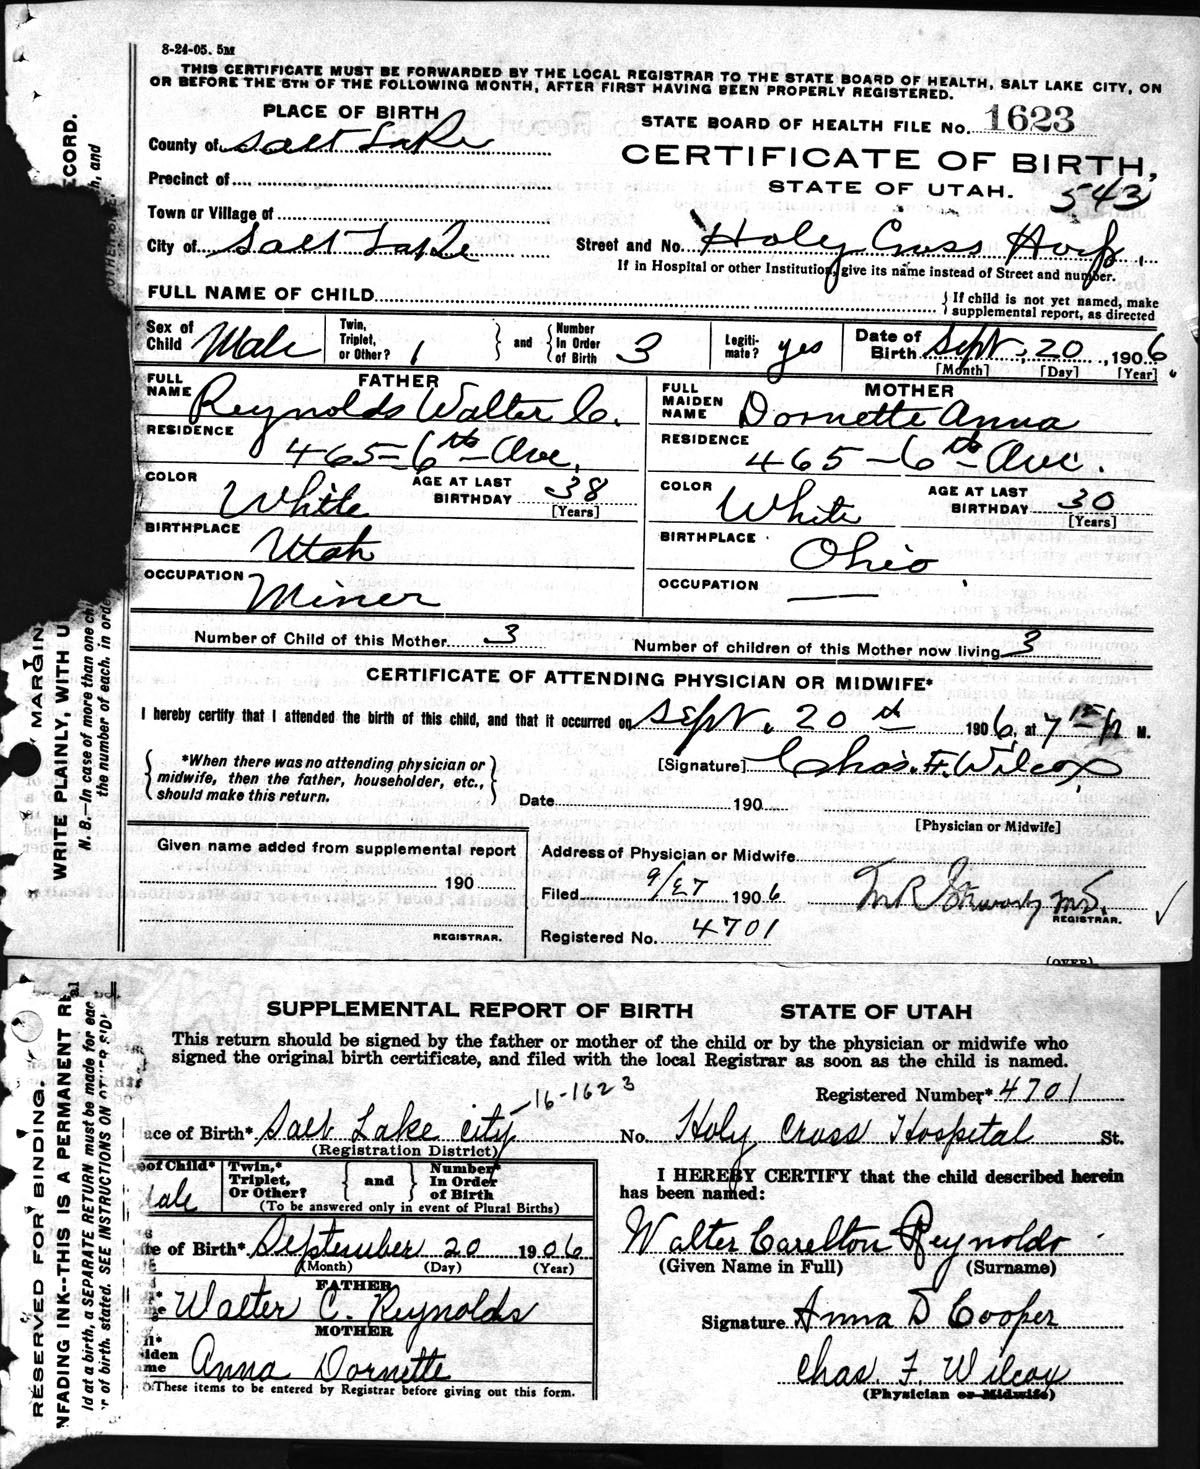 8-24-05. 5M
THIS CERTIFICATE MUST BE FORWARDED BY THE LOCAL REGISTRAR TO THE STATE BOARD OF HEALTH, SALT LAKE CITY, ON
OR BEFORE THE 5TH OF THE FOLLOWING MONTH, AFTER FIRST HAVING BEEN PROPERLY REGISTERED.
PLACE OF BIRTH
STATE BOARD OF HEALTH FILE No. 1623
County of Salt Lake
CERTIFICATE OF BIRTH,
Precinct of
STATE OF UTAH. 543
Town or Village of
City of Salt Lake Street and No. Holy Cross Hosp.
If in Hospital or other Institution, give its name instead of Street and number.
FULL NAME OF CHILD
{If child is not yet named, make
supplemental report, as directed
Sex of Child Male Twin, Triplet, or Other? 1 } and { Number In Order of Birth 3 Legiti-mate? yes Date of Birth Sept. 20, 1906
[Month] [Day] [Year]
FATHER MOTHER
FULL NAME Reynolds Walter C. FULL MAIDEN NAME Dornette Anna
RESIDENCE 465-6th Ave. RESIDENCE 465-6th Ave.
COLOR White AGE AT LAST BIRTHDAY 38 [Years] COLOR White AGE AT LAST BIRTHDAY 30 [Years]
BIRTHPLACE Utah BIRTHPLACE Ohio
OCCUPATION Miner OCCUPATION —
Number of Child of this Mother 3 Number of children of this Mother now living 3
CERTIFICATE OF ATTENDING PHYSICIAN OR MIDWIFE*
I hereby certify that I attended the birth of this child, and that it occurred on Sept. 20th 1906, at 7 M.
*When there was no attending physician or
midwife, then the father, householder, etc.,
should make this return.
[Signature] Chas. F. Wilcox
Date 190
[Physician or Midwife]
Given name added from supplemental report
190
REGISTRAR.
Address of Physician or Midwife
Filed 9/27 1906 M.D.
REGISTRAR.
Registered No. 4701
(OVER)
MARGIN
WRITE PLAINLY, WITH U
ECORD.
N. B.—In case of more than one
the number of each. in order
SUPPLEMENTAL REPORT OF BIRTH STATE OF UTAH
This return should be signed by the father or mother of the child or by the physician or midwife who
signed the original birth certificate, and filed with the local Registrar as soon as the child is named.
16-1623
Registered Number* 4701
ace of Birth* Salt Lake City No. Holy Cross Hospital St.
(Registration District)
of Child* ale Twin,* Triplet, Or Other? } and { Number* In Order of Birth
(To be answered only in event of Plural Births)
I HEREBY CERTIFY that the child described herein
has been named:
te of Birth* September 20 1906
(Month) (Day) (Year)
Walter Carelton Reynolds
(Given Name in Full) (Surname)
FATHER
Walter C. Reynolds
MOTHER
iden
me Anna Dornette
Signature Anna D Cooper
Chas. F. Wilcox
(Physician or Midwife)
These items to be entered by Registrar before giving out this form.
RESERVED FOR BINDING.
NFADING INK--THIS IS A PERMANENT RE
ld at a birth, a SEPARATE RETURN must be made for eac
r of birth stated. SEE INSTRUCTIONS ON OTHER SIDE